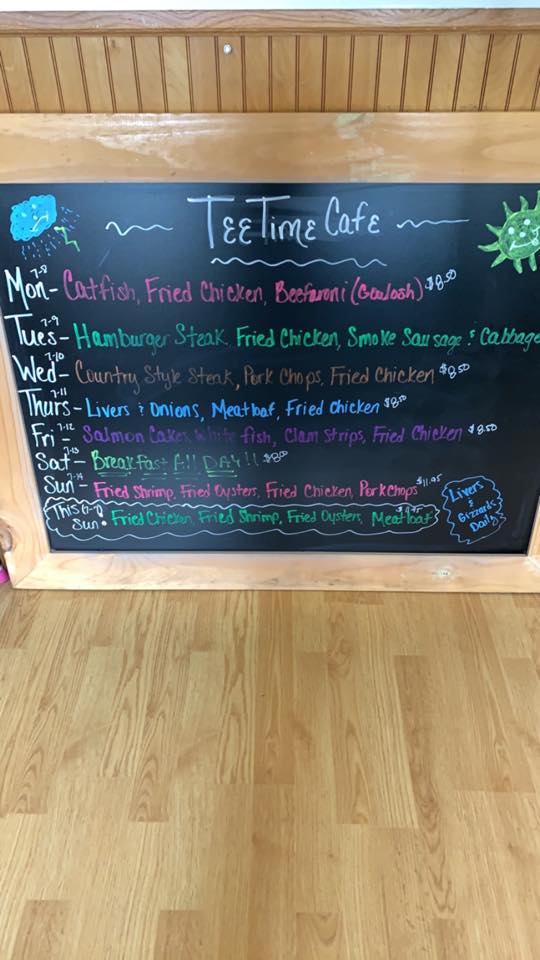 TEE TIME Cafe
7-8
Mon- Catfish, Fried Chicken, Beefaroni (Goulosh) $8.50
7-9
Tues- Hamburger Steak, Fried Chicken, Smoke Sausage & Cabbage
7-10
Wed- Country Style Steak, Pork Chops, Fried Chicken $8.50
7-11
Thurs- Livers & Onions, Meatloaf, Fried Chicken $8.50
7-12
Fri- Salmon Cakes, White fish, Clam Strips, Fried Chicken $8.50
7-13
Sat- Breakfast All DAY!!
7-14
Sun- Fried Shrimp, Fried Oysters, Fried Chicken, Pork Chops $11.95
This 7-7
Sun. Fried Chicken, Fried Shrimp, Fried Oysters, Meatloaf
Livers
&
Gizzards
Daily